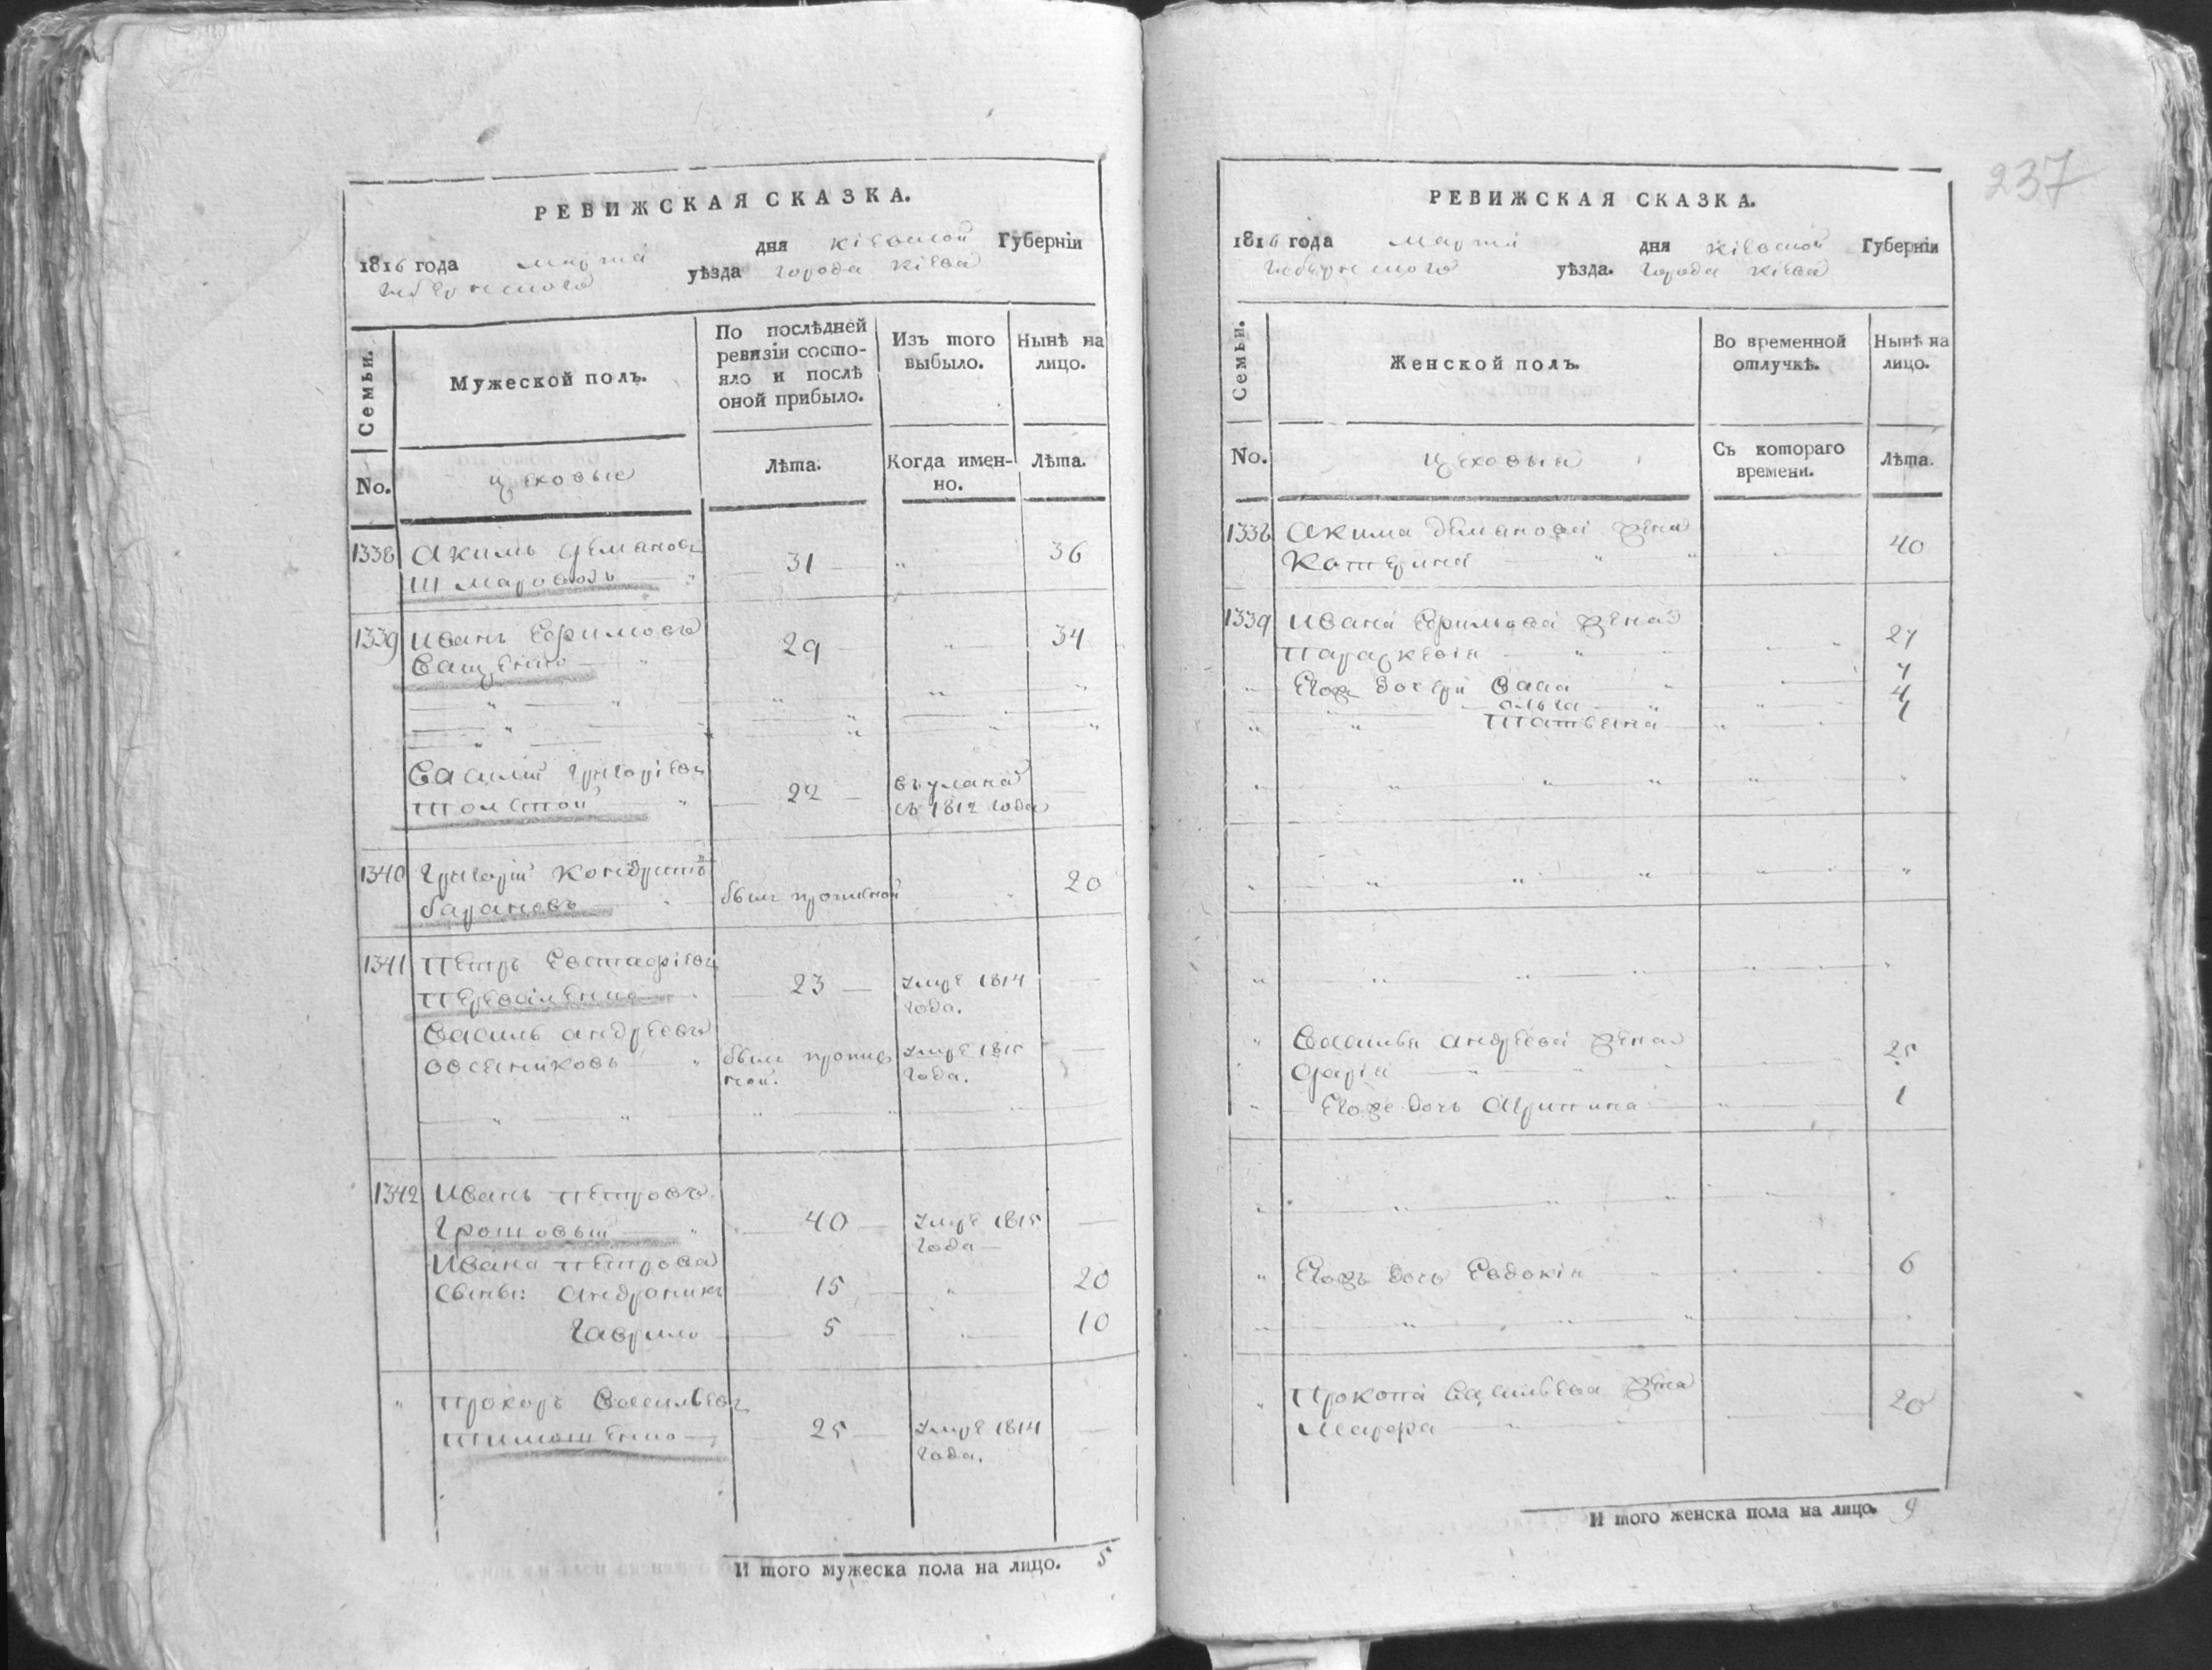 РЕВИЖСКАЯ СКАЗКА.
1816 года марта дня Кіевской Губерніи
уѣзда города Кіева
Семьи.
Мужеской полъ.
По послѣдней
ревизіи состо-
яло и послѣ
оной прибыло.
Изъ того
выбыло.
Нынѣ на
лицо.
No.
цеховые
Лѣта.
Когда имен-
но.
Лѣта.
1338 Акимъ Демановъ
31 36
1339 Иванъ Ефимовъ
Ващенко 29 34
Василій Григоріевъ
Толстой 22
въ улана
съ 1812 года
1340 Григорій
Барановъ былъ прописной 20
1341 Петръ Евстафіевъ
23 умре 1814
года.
Василь Андреевъ
Овсениковъ былъ пропис
ной.
умре 1815
года.
1342 Иванъ Петровъ
Грошовый 40 умре 1815
года
Ивана Петрова
сыны: Андроникъ 15 20
Гаврило 5 10
Прохоръ Васильевъ
Тимошенко 25 умре 1814
года.
И того мужеска пола на лицо. 5
237
РЕВИЖСКАЯ СКАЗКА.
1816 года марта дня Кіевской Губерніи
уѣзда. города Кіева
Семьи.
Женской полъ.
Во временной
отлучкѣ.
Нынѣ на
лицо.
No.
цеховыя
Съ котораго
времени.
Лѣта.
1338 Акима Деманова жена
Катерина 40
1339 Ивана Ефимова жена
Параскевія
Его дочери
Ольга 4
Татьяна 1
Василья Андреева жена
Дарія 25
Егоже дочь 1
Егожъ дочь Евдокія 6
Прокопа Васильева жена
Марфа 20
И того женска пола на лицо. 9